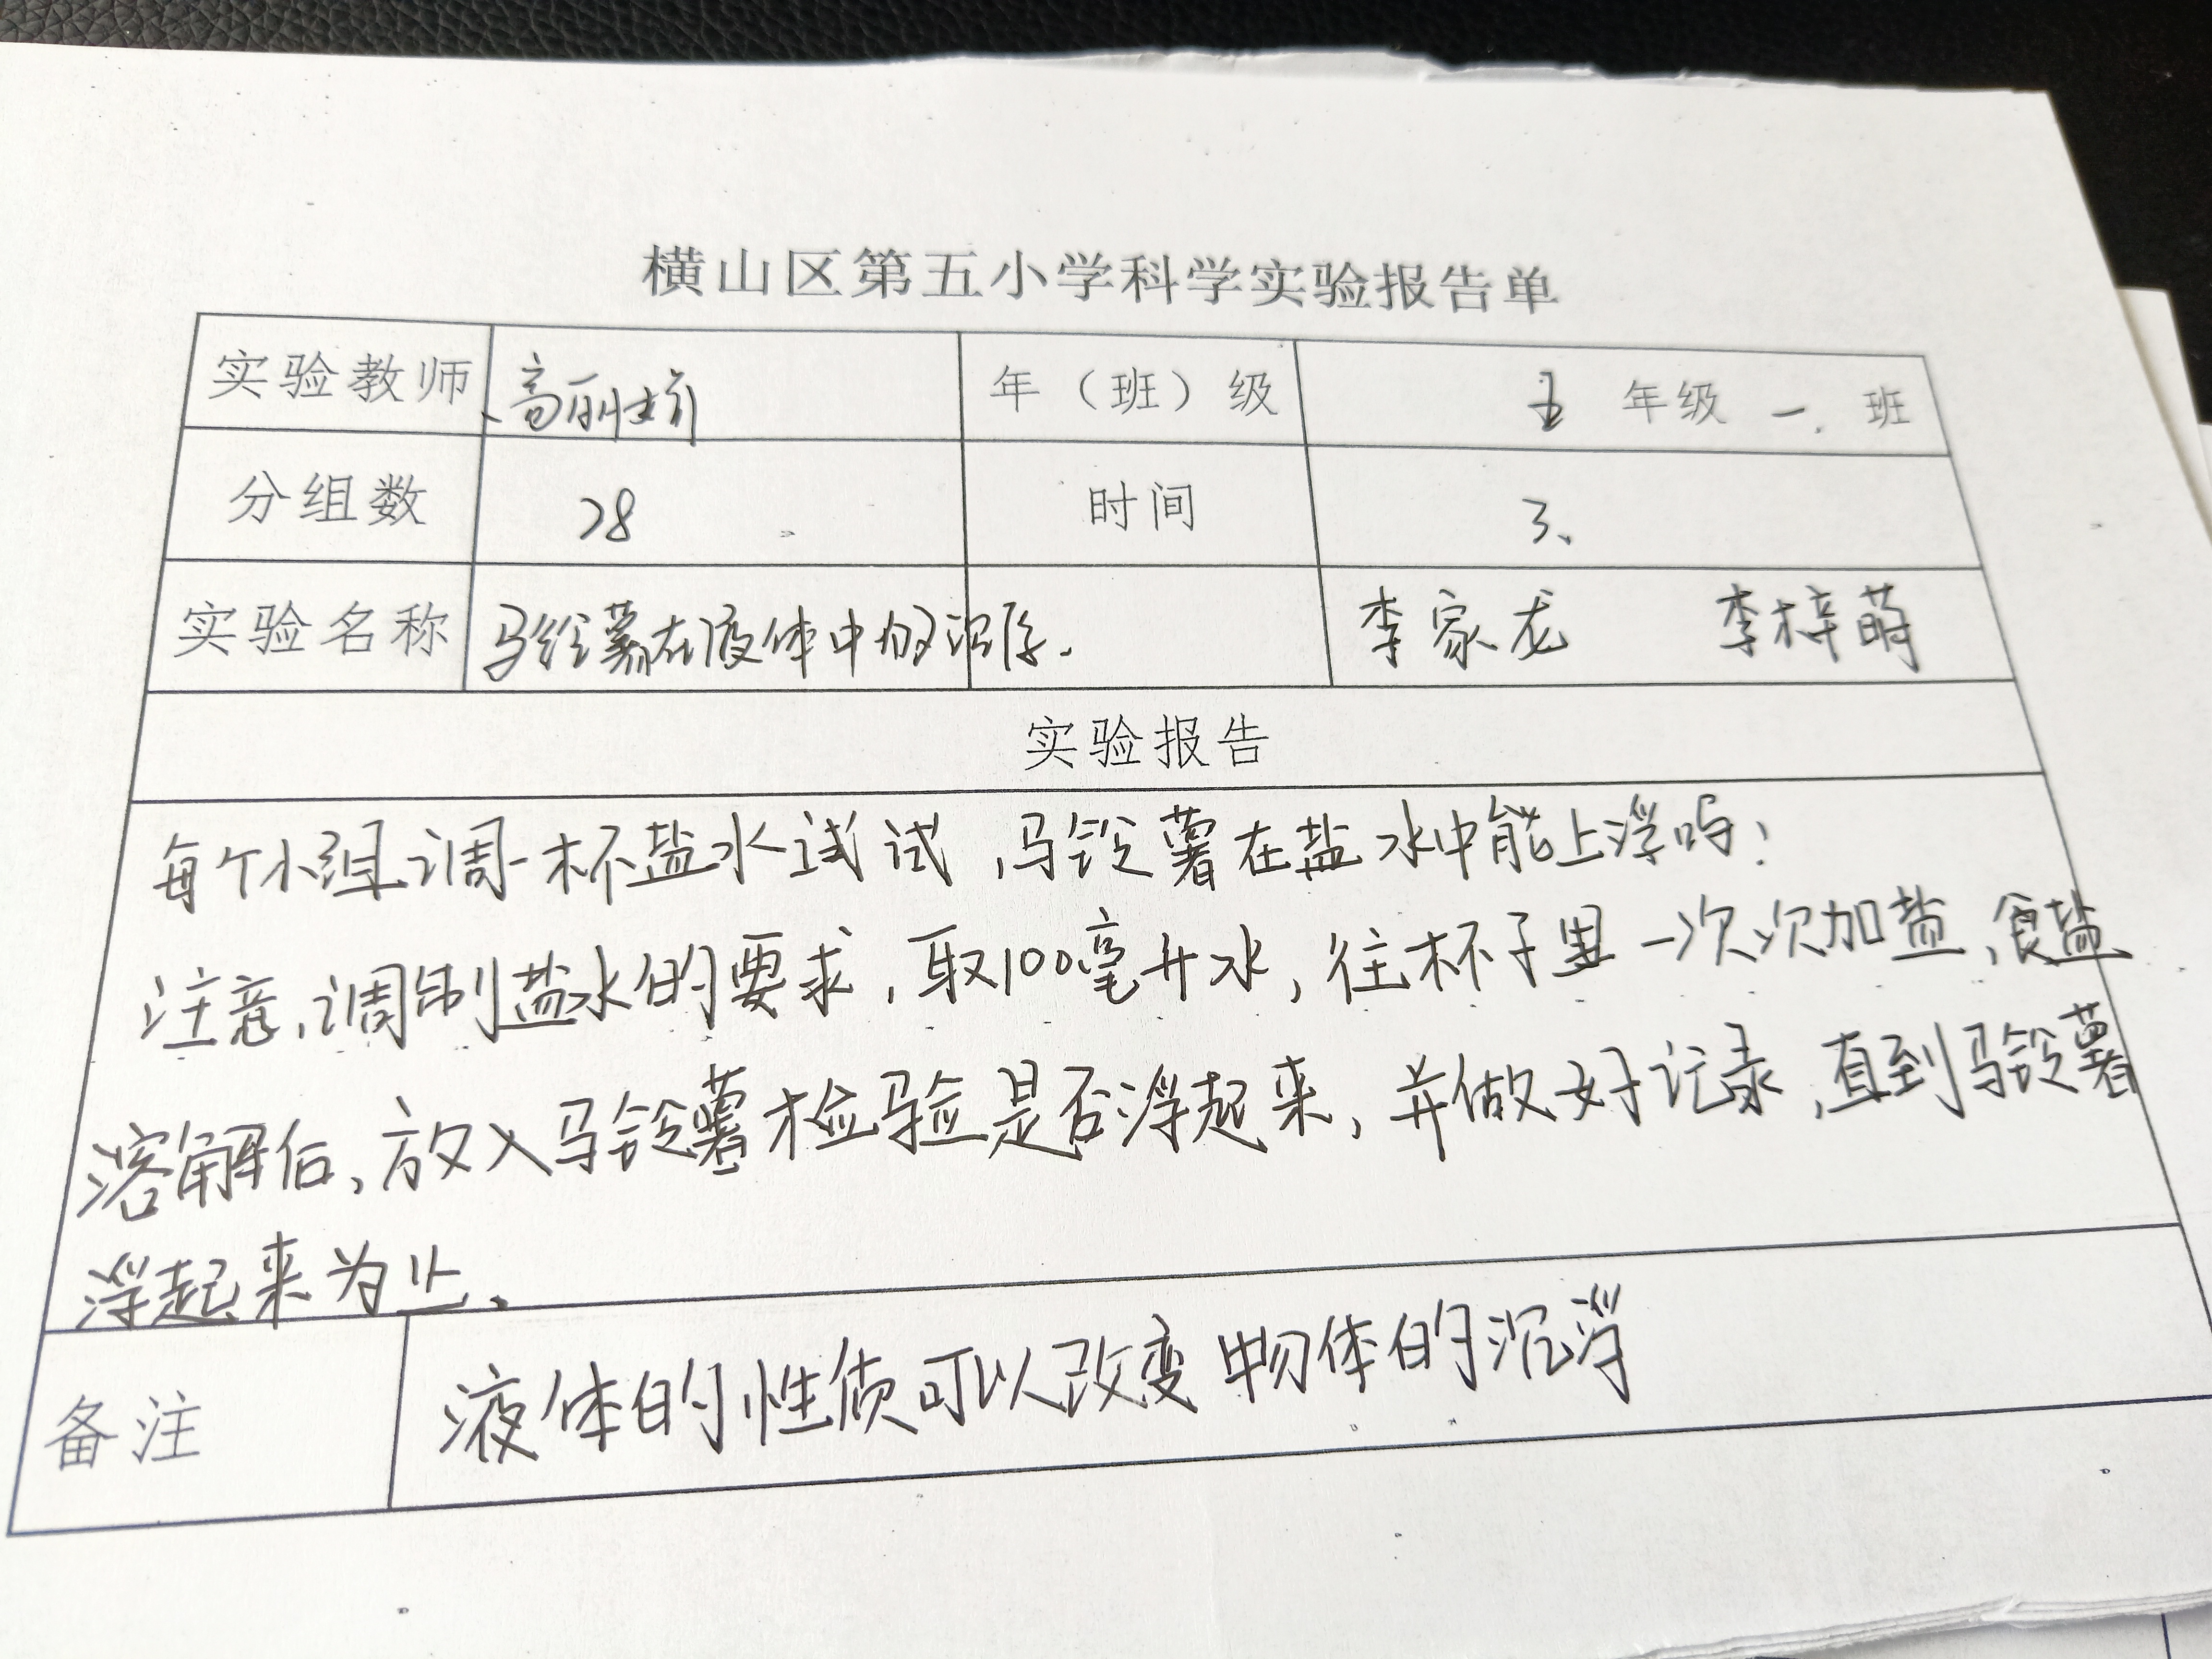 横山区第五小学科学实验报告单
实验教师 高丽娇 年（班）级 五 年级 一、班
分组数 28 时间 3、
实验名称 马铃薯在液体中的沉浮. 李家龙 李梓萌
实验报告
每个小组调一杯盐水试试,马铃薯在盐水中能上浮吗?
注意,调制盐水的要求,取100毫升水,往杯子里一次次加盐,食盐
溶解后,放入马铃薯检验是否浮起来,并做好记录,直到马铃薯
浮起来为止、
备注 液体的性质可以改变物体的沉浮